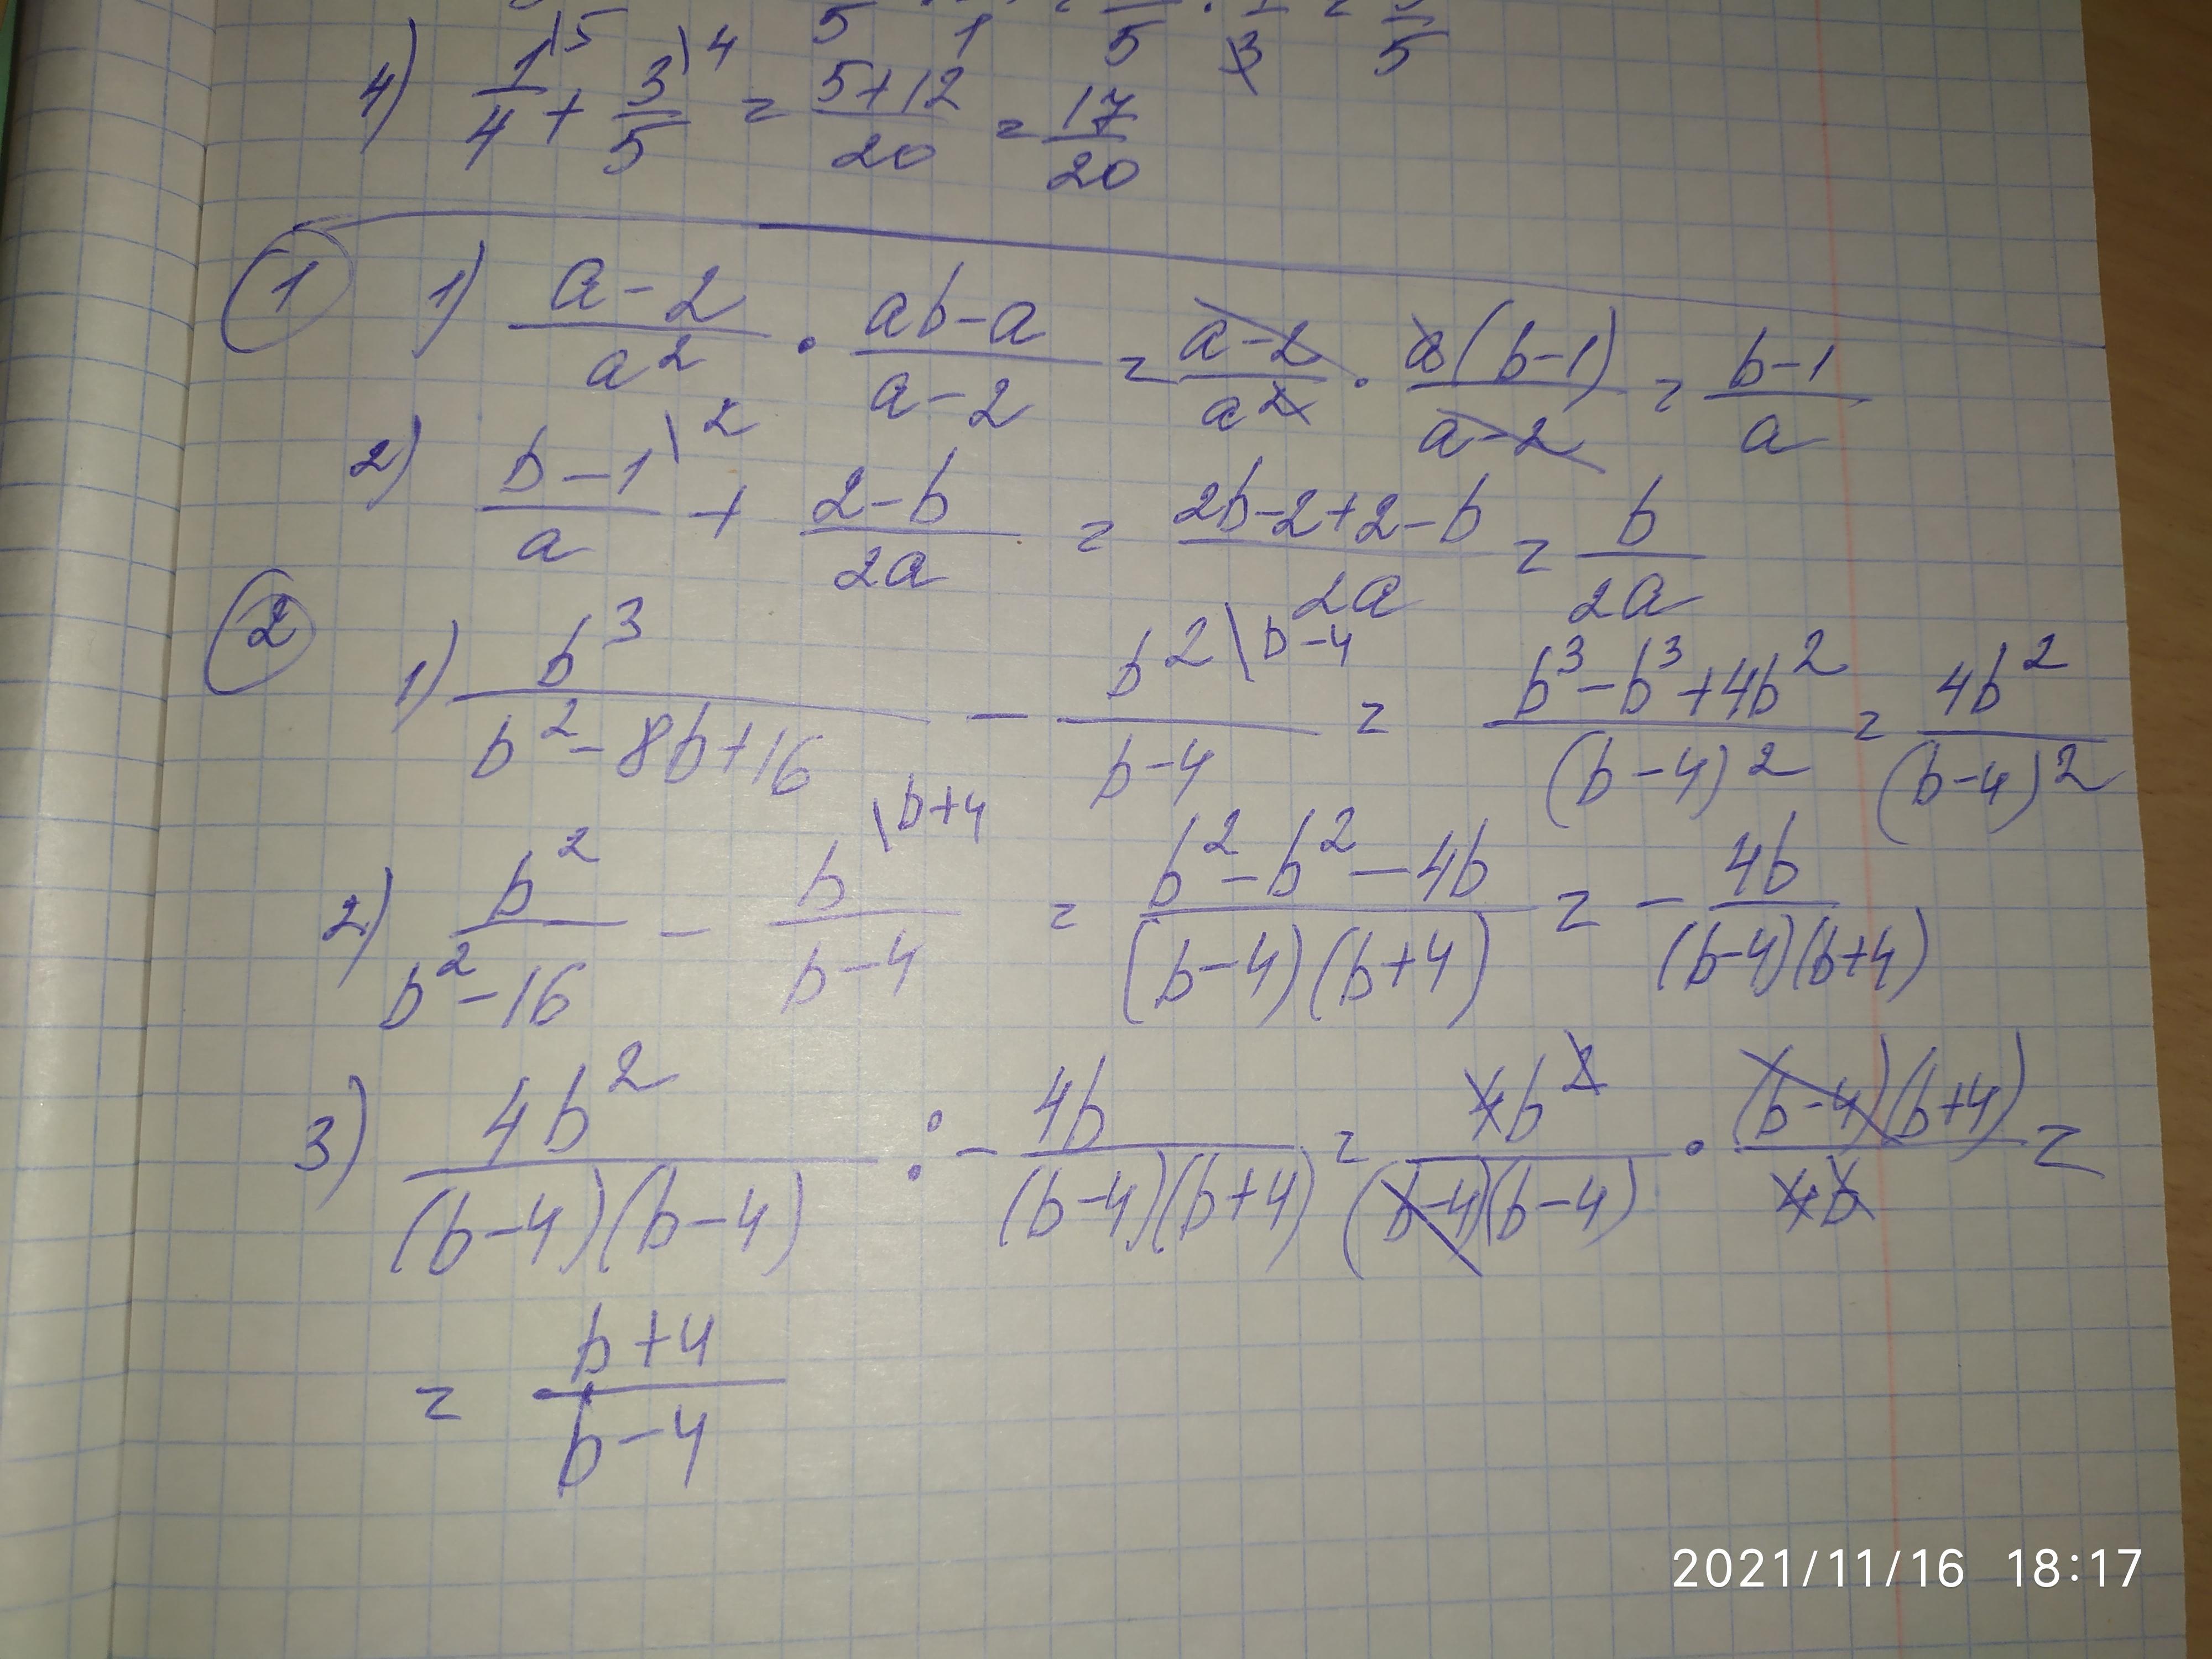 5 1 5 3 5
4) 1/4\5 + 3/5\4 = (5+12)/20 = 17/20
① 1) (a-2)/a² · (ab-a)/(a-2) = (a-2)/a² · a(b-1)/(a-2) = (b-1)/a
2) (b-1)/a\2 + (2-b)/2a = (2b-2+2-b)/2a = b/2a
② 1) b³/(b²-8b+16) - b²/(b-4)\b-4 = (b³-b³+4b²)/(b-4)² = 4b²/(b-4)²
2) b²/(b²-16) - b/(b-4)\b+4 = (b²-b²-4b)/(b-4)(b+4) = - 4b/(b-4)(b+4)
3) 4b²/(b-4)(b-4) : - 4b/(b-4)(b+4) = 4b²/(b-4)(b-4) · (b-4)(b+4)/4b =
= (b+4)/(b-4)
2021/11/16 18:17